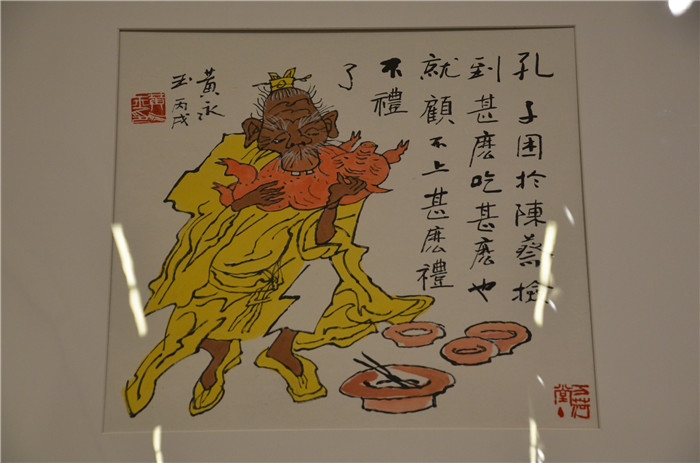 孔子困於陳蔡撿
到甚麽吃甚麽也
就顧不上甚麽禮
不禮
了
黃永
玉丙戌
萬荷
堂